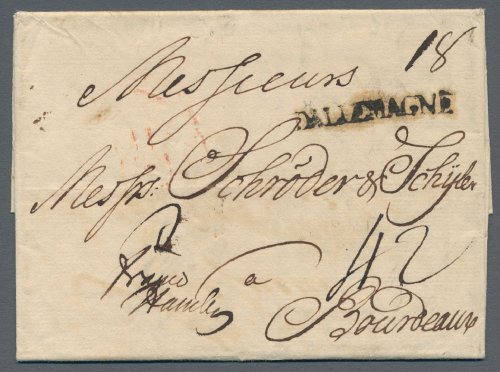 18
Messieurs
D'ALLEMAGNE
Messrs. Schröder & Schÿler
franco
Hamb
42
a
Bourdeaux